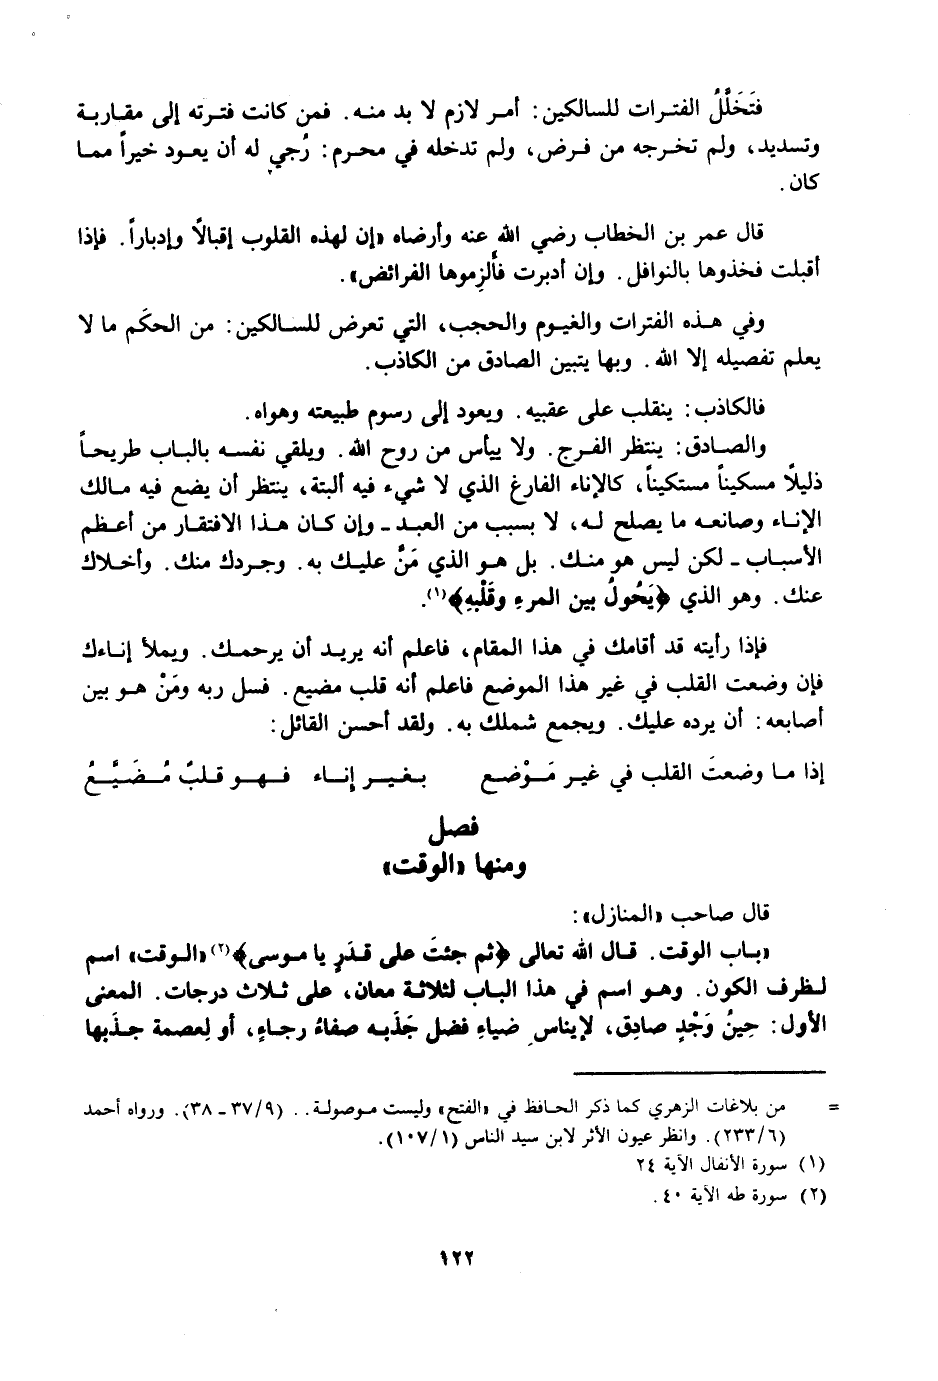 فَتَخَلُّلُ الفترات للسالكين: أمر لازم لا بد منه. فمن كانت فترته إلى مقاربة
وتسديد، ولم تخرجه من فرض، ولم تدخله في محرم: رُجي له أن يعود خيراً مما
كان.
قال عمر بن الخطاب رضي الله عنه وأرضاه «إن لهذه القلوب إقبالاً وإدباراً. فإذا
أقبلت فخذوها بالنوافل. وإن أدبرت فألزموها الفرائض».
وفي هذه الفترات والغيوم والحجب، التي تعرض للسالكين: من الحكَم ما لا
يعلم تفصيله إلا الله. وبها يتبين الصادق من الكاذب.
فالكاذب: ينقلب على عقبيه. ويعود إلى رسوم طبيعته وهواه.
والصادق: ينتظر الفرج. ولا ييأس من روح الله. ويلقي نفسه بالباب طريحاً
ذليلاً مسكيناً مستكيناً، كالإناء الفارغ الذي لا شيء فيه ألبتة، ينتظر أن يضع فيه مالك
الإناء وصانعه ما يصلح له، لا بسبب من العبد ـ وإن كان هذا الافتقار من أعظم
الأسباب ـ لكن ليس هو منك. بل هو الذي مَنَّ عليك به. وجردك منك. وأخلاك
عنك. وهو الذي ﴿يَحُولُ بين المرءِ وقَلْبِهِ﴾(١).
فإذا رأيته قد أقامك في هذا المقام، فاعلم أنه يريد أن يرحمك. ويملأ إناءك
فإن وضعت القلب في غير هذا الموضع فاعلم أنه قلب مضيع. فسل ربه ومَنْ هو بين
أصابعه: أن يرده عليك. ويجمع شملك به. ولقد أحسن القائل:
إذا ما وضعتَ القلب في غير مَوْضع بغير إناء فهو قلبٌ مُضَيَّعُ
فصل
ومنها «الوقت»
قال صاحب «المنازل»:
«باب الوقت. قال الله تعالى ﴿ثم جئتَ على قدَرٍ يا موسى﴾(٢) «الوقت» اسم
لظرف الكون. وهو اسم في هذا الباب لثلاثة معان، على ثلاث درجات. المعنى
الأول: حِينُ وَجْدٍ صادِق، لإيناسِ ضياءِ فضل جَذَبه صفاءُ رجاءٍ، أو لِعصمة جذَبها
= من بلاغات الزهري كما ذكر الحافظ في «الفتح» وليست موصولة.. (٩/ ٣٧ ـ ٣٨). ورواه أحمد
(٢٣٣/٦). وانظر عيون الأثر لابن سيد الناس (١/ ١٠٧).
(١) سورة الأنفال الآية ٢٤
(٢) سورة طه الآية ٤٠.
١٢٢